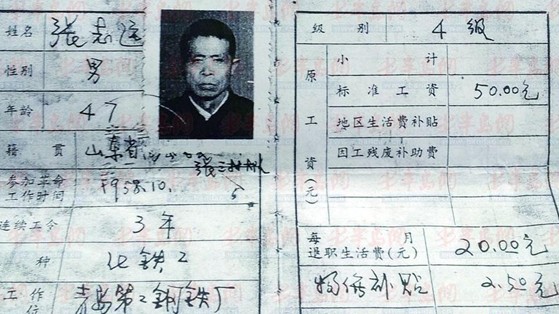 姓名 张志
性别 男
年龄 47
籍贯 山东省
参加革命工作时间 1958.10.
连续工令 3年
种 化铁工
工作 青岛第二钢铁厂
级别 4级
原工资(元)
小计
标准工资 50.00元
地区生活费补贴
因工残废补助费
每月退职生活费(元) 20.00元
物价补贴 2.50元